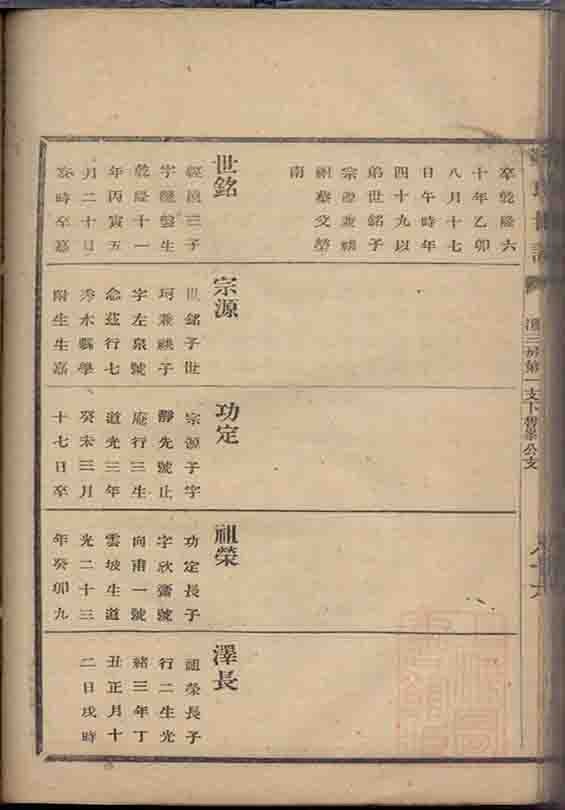 卒乾隆六
十年乙卯
八月十七
日午時年
四十九以
弟世銘子
宗源兼祧
祖塋文勞
南
世銘
三子
字盤生
乾隆十一
年丙寅五
月二十日
亥時卒嘉
宗源
世銘子世
珂兼祧子
字左泉號
念茲行七
秀水縣學
附生生嘉
功定
宗源子字
靜先號止
庵行三生
道光三年
癸未三月
十七日卒
祖榮
功定長子
字欣齋號
向甫一號
雲坡生道
光二十三
年癸卯九
澤長
祖榮長子
行二生光
緒三年丁
丑正月十
二日戌時
三房第一支下舊峯公支